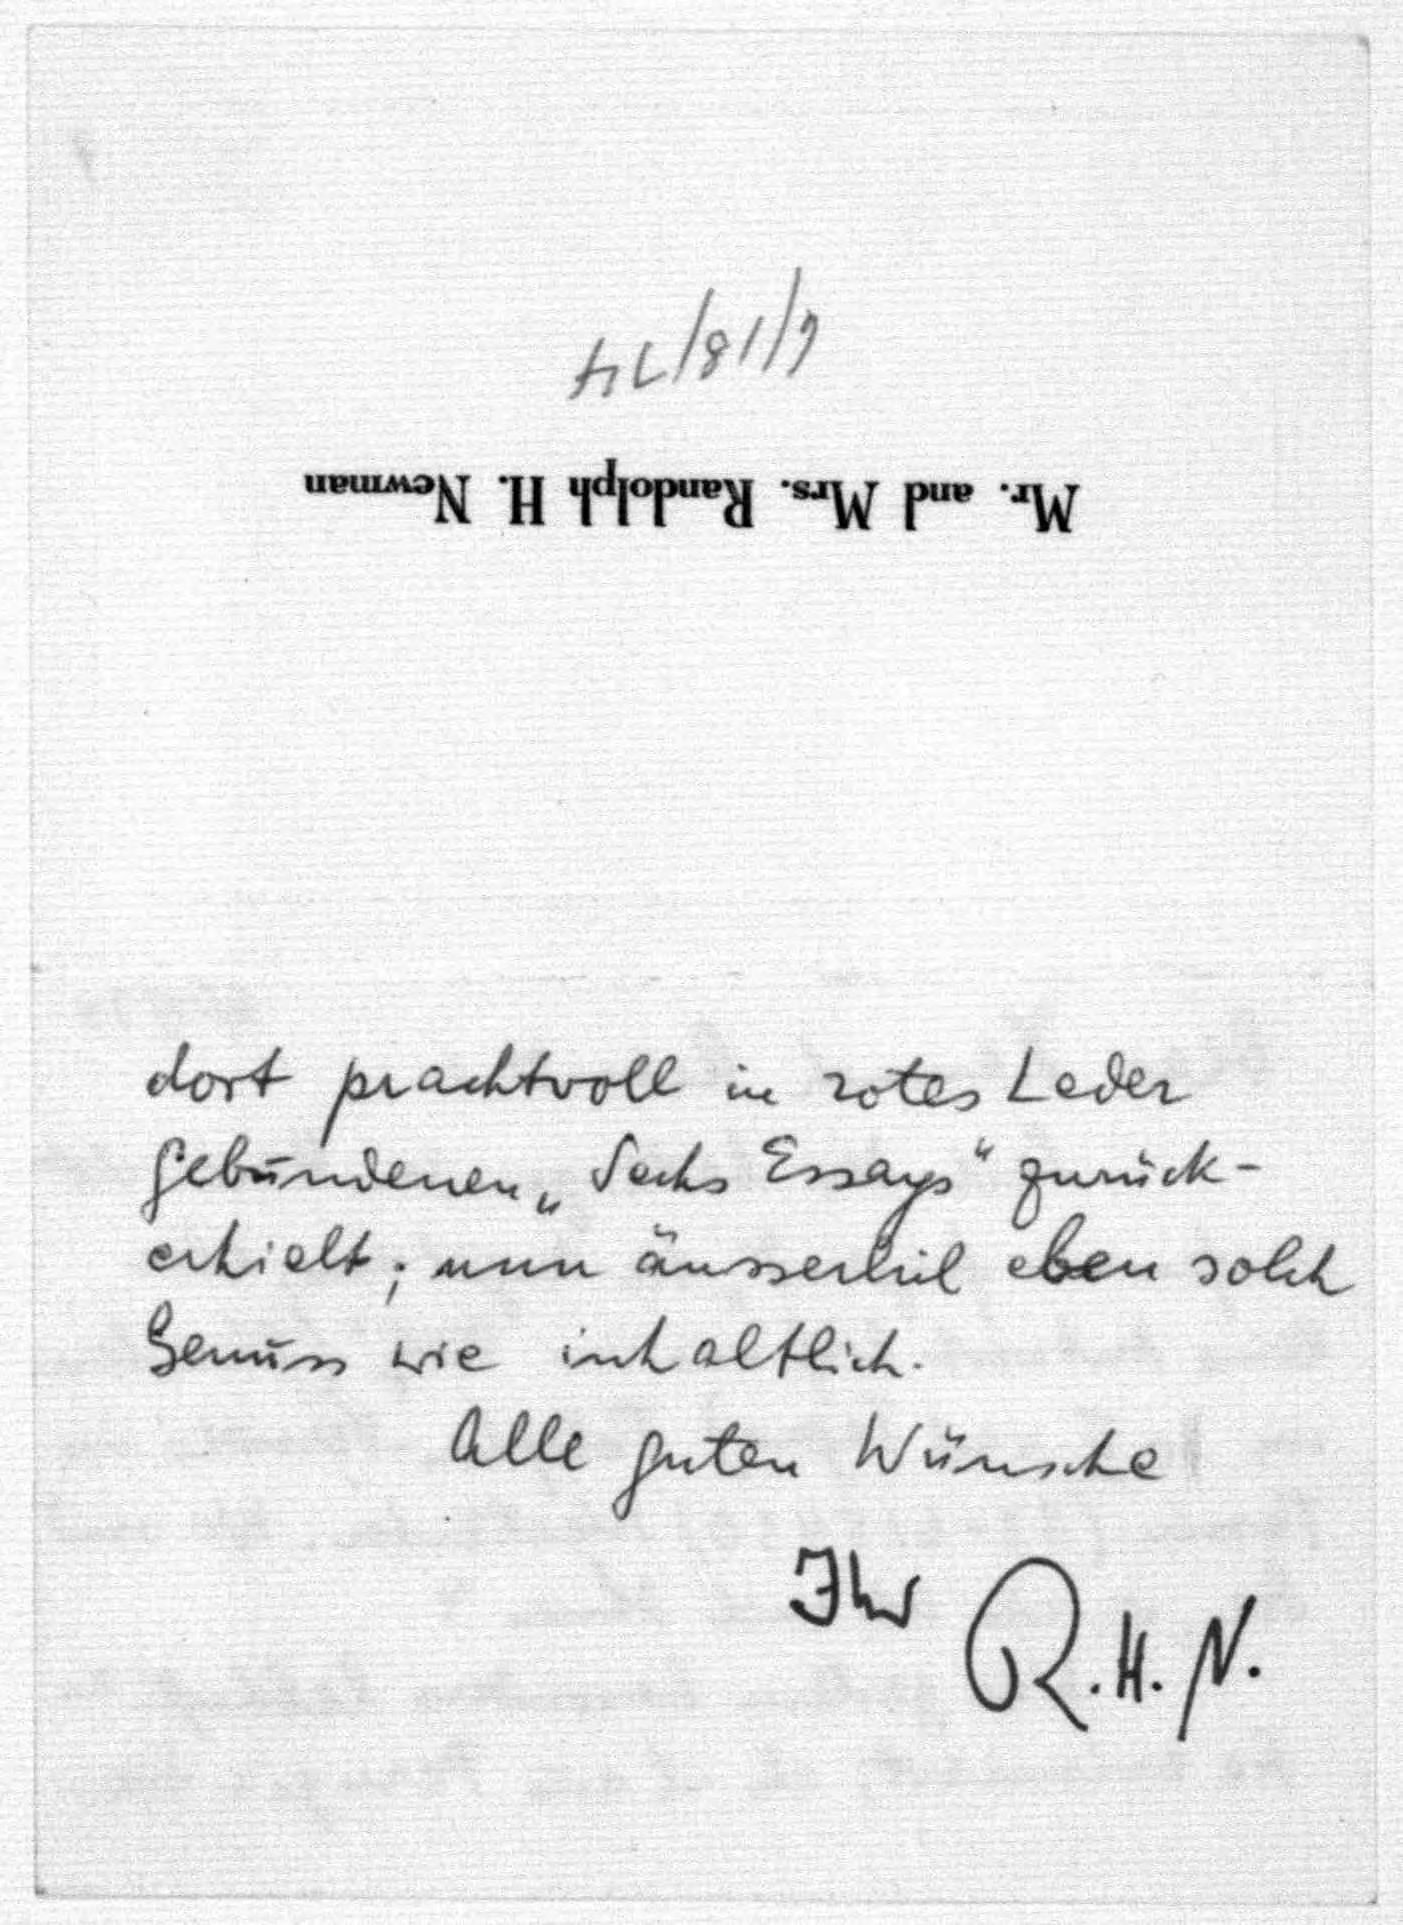 6/18/74
Mr. and Mrs. Randolph H. Newman
dort prachtvoll in rotes Leder
gebundenen „Sechs Essays“ zurück-
erhielt; nun äusserlich eben solch
Genuss wie inhaltlich.
Alle guten Wünsche
Ihr R.H.N.